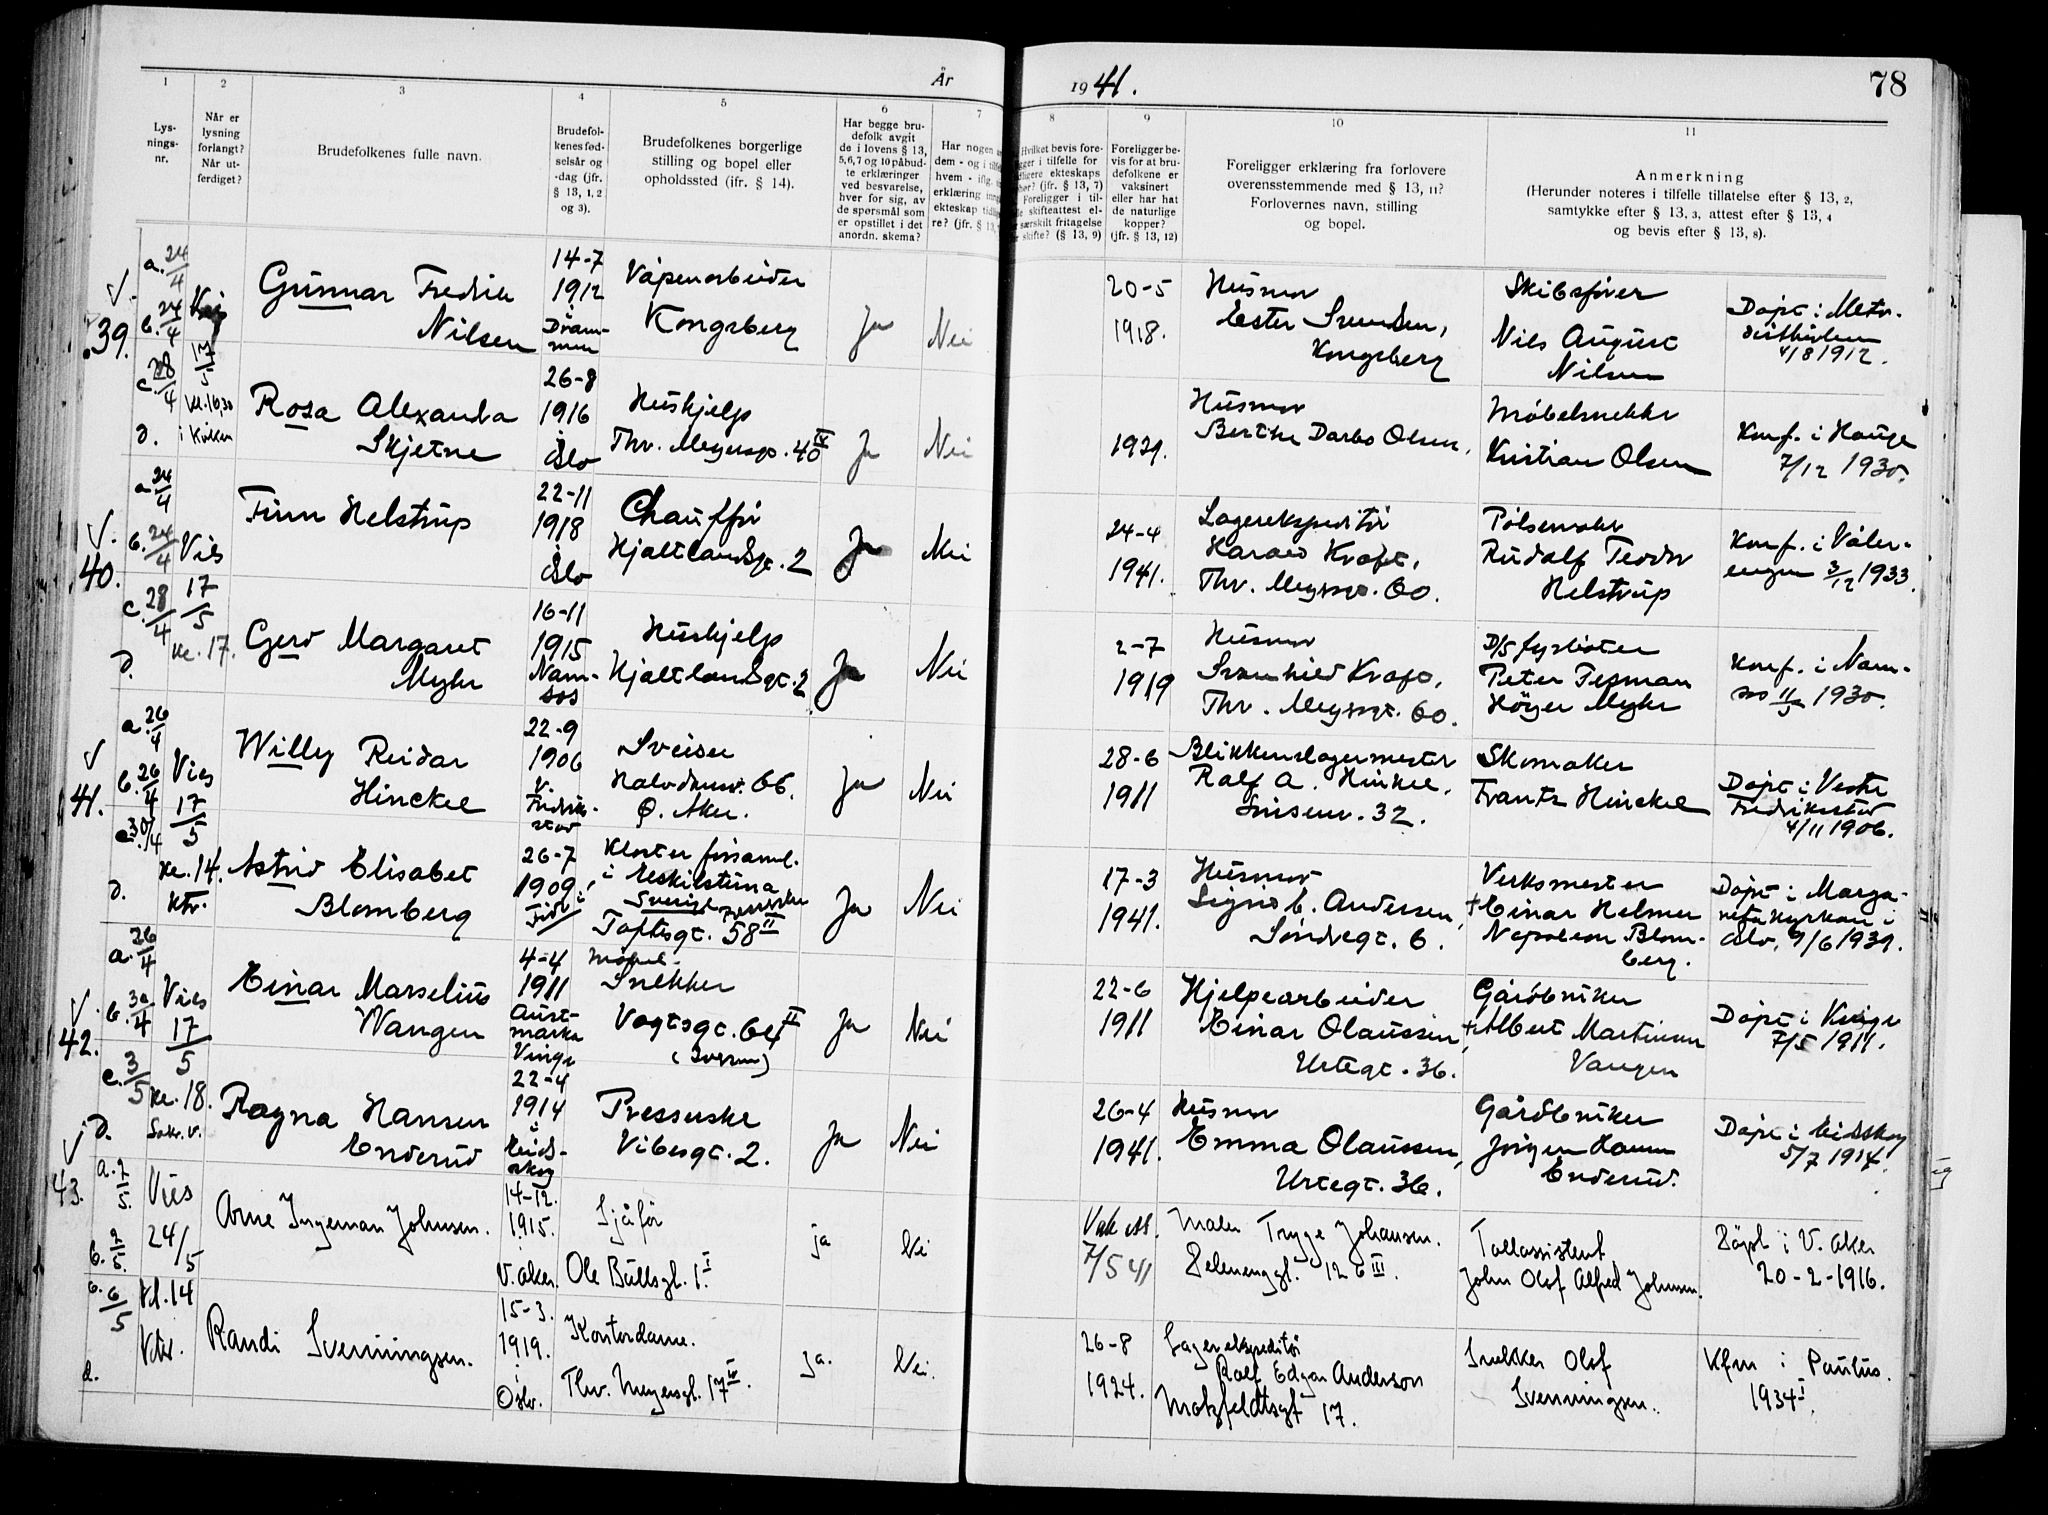 År
19 41.
78
1
2
3
4
5
6
7
8
9
10
11
Lys-
nings-
nr.
Når er
lysning
forlangt?
Når ut-
ferdiget?
Brudefolkenes fulle navn.
Brudefol-
kenes fød-
selsår og
-dag (jfr.
§ 13, 1, 2
og 3).
Brudefolkenes borgerlige
stilling og bopel eller
opholdssted (ifr. § 14).
Har begge bru-
defolk avgit
de i lovens § 13,
5,6,7 og 10 påbud-
te erklæringer
ved besvarelse,
hver for sig, av
de spørsmål som
er opstillet i det
anordn. skema?
Har nogen
dem - og i
hvem - iflg.
erklæring
ekteskap
re? (jfr. § 13,
Hvilket bevis fore-
i tilfelle for
ekteskaps
(jfr. § 13, 7)
Foreligger i til-
skifteattest el-
særskilt fritagelse
skifte? (§ 13, 9)
Foreligger be-
vis for at bru-
defolkene er
vaksinert
eller har hat
de naturlige
kopper?
(jfr. § 13, 12)
Foreligger erklæring fra forlovere
overensstemmende med § 13, 11?
Forlovernes navn, stilling
og bopel.
Anmerkning
(Herunder noteres i tilfelle tillatelse efter § 13, 2,
samtykke efter § 13, 3, attest efter § 13, 4
og bevis efter § 13, 8).
39.
a. 24/4
b. 24/4
c. 28/4
d.
17/5
kl. 16,30
Gunnar Fredrik
Nilsen
14-7
1912
i
Dram-
men
Våpenarbeider
Kongsberg
Ja
Nei
20-5
1918.
Husmor
Ester Svendsen,
Kongsberg
Skibsfører
Nils August
Nilsen
Døpt i Meto-
distkirken
4/8 1912.
Rosa Alexandra
Skjetne
26-8
1916
i
Oslo
Hushjelp
Thv. Meyersgt. 40 IV
Ja
Nei
1921.
Husmor
Berthe Darbo Olsen,
Møbelsnekker
Kristian Olsen
Konf. i Hauge
7/12 1930.
40.
a 24/4
b. 24/4
c. 28/4
d.
Vies
17/5
kl. 17.
Finn Helstrup
22-11
1918
i
Oslo
Chauffør
Hjaltlandsgt. 2
Ja
Nei
24-4
1941.
Lagerekspeditør
Harald Kraft,
Thv. Meyersgt. 60.
Pølsemaker
Rudolf Teodor
Helstrup
Konf. i Våler-
engen 3/12 1933.
Gerd Margaret
Myhr
16-11
1915
Nam-
sos
Hushjelp
Hjaltlandsgt. 2
Ja
Nei
2-7
1919
Husmor
Svanhild Kraft,
Thv. Meyersgt. 60.
D/S fyrbøter
Peter Tesman
Höyer Myhr
Konf. i Nam-
sos 11/5 1930.
41.
a. 26/4
b. 26/4
c. 30/4
d.
Vies
17/5
kl. 14.
Ktr.
Willy Reidar
Hinckel
22-9
1906
V.
Fredrik-
stad
Sveiser
66.
Ø. Aker.
Ja
Nei
28-6
1911
Blikkenslagermester
Ralf A. Hinkel,
32.
Skomaker
Frantz Hinckel
Døpt i Vestre
Fredrikstad
4/11 1906.
Astrid Elisabet
Blomberg
26-7
1909,
Kloster forsaml.
i Eskilstuna
Sverige
Toftesgt. 58 II
Ja
Nei
17-3
1941.
Husmor
Signe C. Andersen,
Søndregt. 6.
Verksmester
†Einar Helmer
Napoleon Blom-
berg.
Døpt i Marga-
reta kyrkan i
Oslo, 9/6 1939.
42.
a. 26/4
b. 30/4
c. 3/5
d.
Vies
17/5
kl. 18.
Sakr.v.
Einar Marselius
Wangen
4-4
1911
Aust-
marka
Vinger
Møbel-
Snekker
Vogtsgt. 64 II
(Iversen)
Ja
Nei
22-6
1911
Hjelpearbeider
Einar Olaussen,
Urtegt. 36.
Gårdbruker
†Albert Martinsen
Vangen
Døpt i Vinger
7/5 1911.
Ragna Hansen
Enderud
22-4
1914
i
Eids-
skog
Presserske
Vibesgt. 2.
Ja
Nei
26-4
1941.
Husmor
Emma Olaussen,
Urtegt. 36.
Gårdbruker
Jørgen Hansen
Enderud.
Døpt i Eidskog
5/7 1914.
43.
a. 2/5.
b. 2/5.
c. 6/5
d.
Vies
24/5
Kl. 14
Ktr.
Arne Ingeman Johnsen.
14-12.
1915.
i
V. Aker.
Sjåfør
Ole Bullsgt. 1. I
ja
Nei
Vak att.
7/5 41
Maler Trygve Johansen.
Selenenggt. 12 b III.
Tollassistent
John Olof Alfred Johnsen.
Døpt i V. Aker
20-2-1916.
Randi Svenningsen.
15-3.
1919.
i
Oslo.
Kontordame.
Thv. Meyersgt. 17 IV.
ja.
Nei.
26-8
1924.
Lagerekspeditør
Ralf Edgar Anderson
Motzfeldtsgt 17.
Snekker Olof
Svenningsen.
Kfm i Paulus.
1934 I.